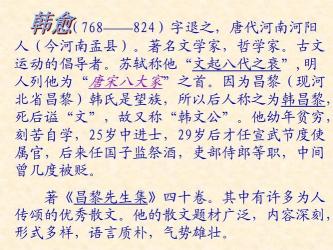 韩愈（768——824）字退之，唐代河南河阳
人（今河南孟县）。著名文学家，哲学家。古文
运动的倡导者。苏轼称他“文起八代之衰”,明
人列他为“唐宋八大家”之首。因为昌黎（现河
北省昌黎）韩氏是望族，所以后人称之为韩昌黎，
死后谥“文”，故又称“韩文公”。他幼年贫穷，
刻苦自学，25岁中进士，29岁后才任宣武节度使
属官，后来任国子监祭酒，吏部侍郎等职，中间
曾几度被贬。
著《昌黎先生集》四十卷。其中有许多为人
传颂的优秀散文。他的散文题材广泛，内容深刻，
形式多样，语言质朴，气势雄壮。